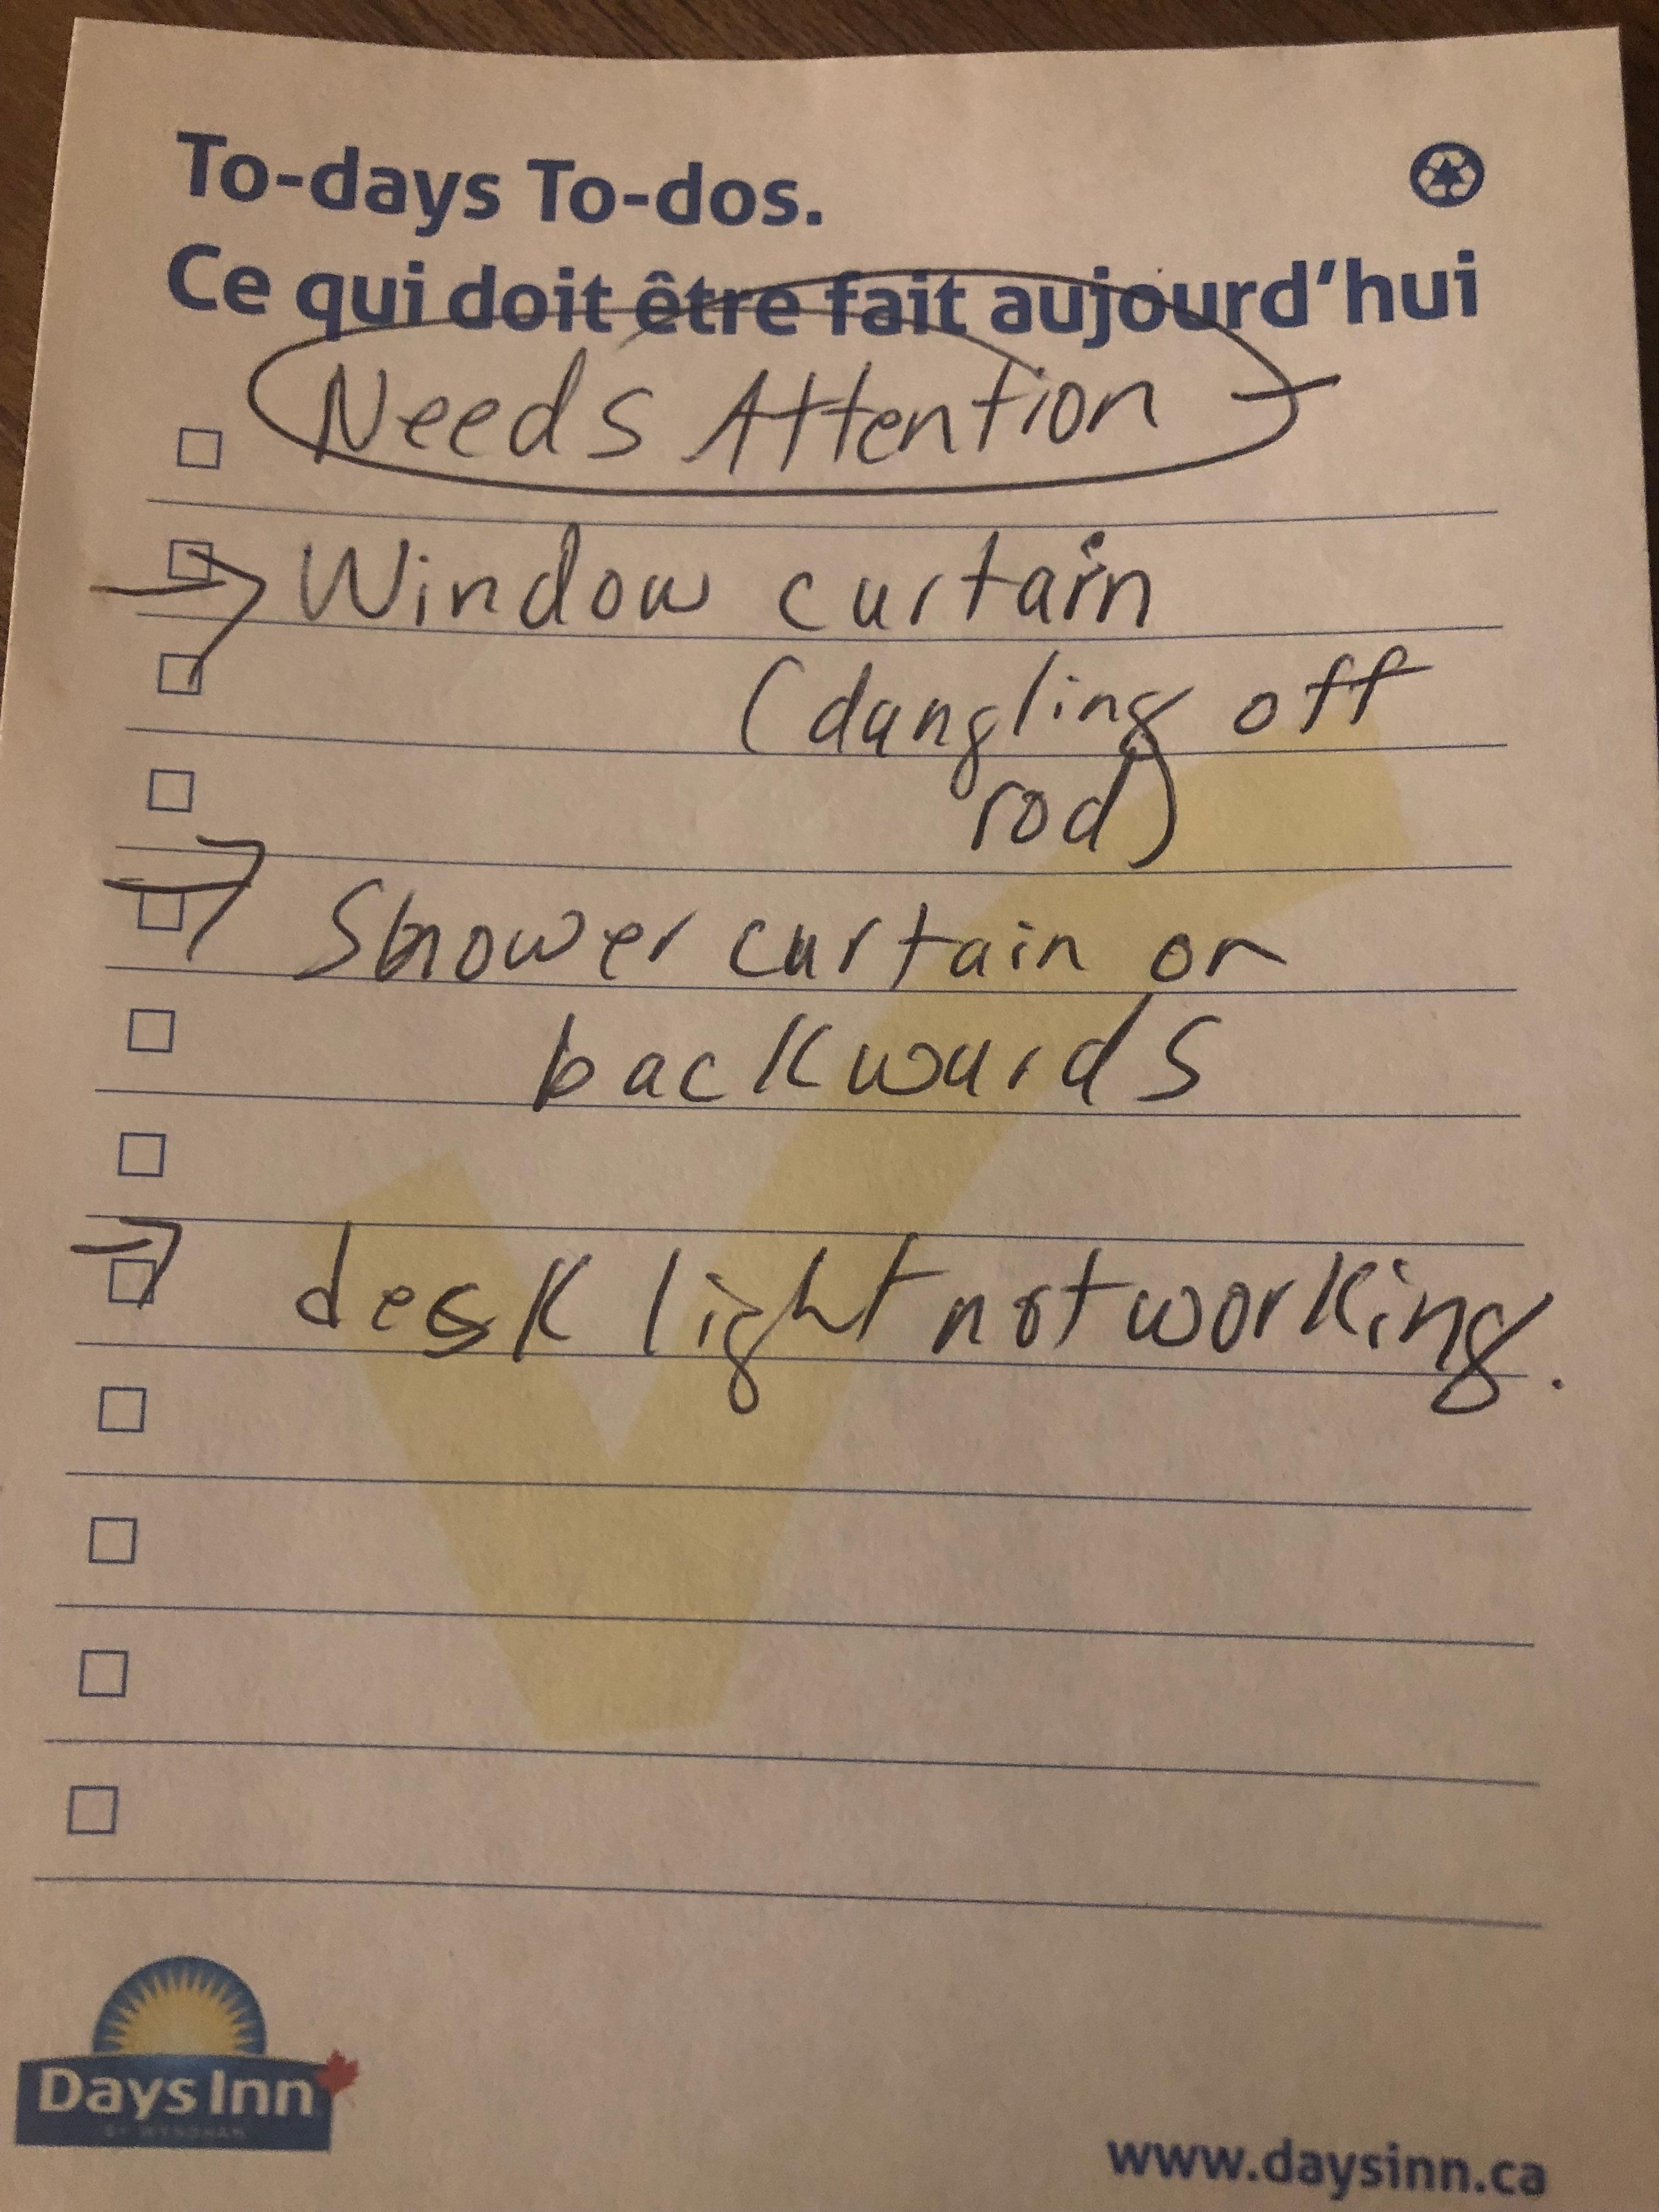 To-days To-dos.
Ce qui doit être fait aujourd'hui
Needs Attention
→ Window curtain
(dangling off
rod)
→ Shower curtain on
backwards
→ desk light not working.
Days Inn
BY WYNDHAM
www.daysinn.ca